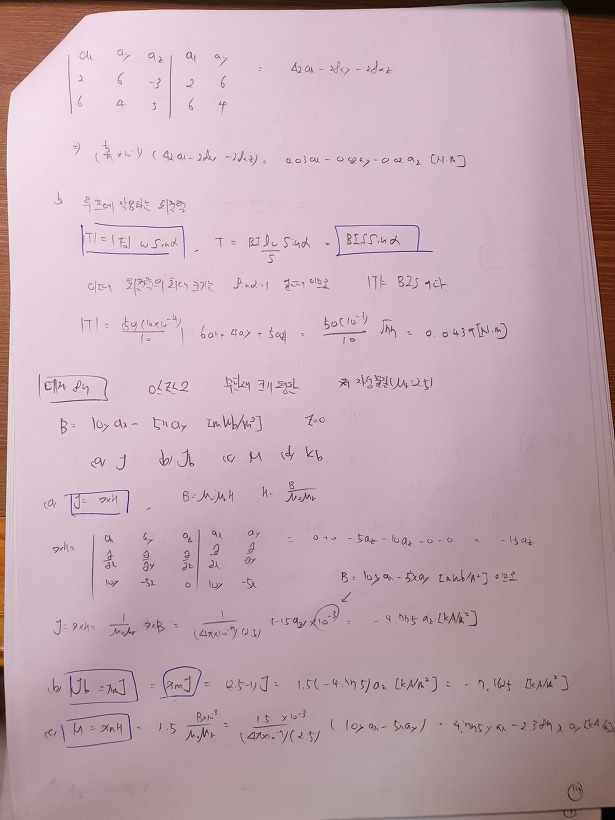 ax ay az ax ay
2 6 -3 2 6 = 42ax - 28ay - 28az
6 4 5 6 4
(42ax - 28ay - 28az) = 0.03ax - 0.02ay - 0.02az [N.m]
b) 루프에 작용하는 회전력
|T| = |F₀| w sinα , T = BIlw sinα = BIS sinα
S
이때 회전력의 최대 크기는 sinα=1 일때 이므로 |T| = BIS 이다
|T| = 6ax + 4ay + 5az = 50(10⁻³) = 0.0439 [N.m]
10 10
예제 8.4 0≤z≤2 자성물질(μr=2.5)
B = 10y ax - 5x ay [mWb/m²] z=0
(a) J (b) Jb (c) M (d) Kb
(a) J = ∇×H , B = μ₀μrH H = B/μ₀μr
∇×H = ax ay az ax ay
∂/∂x ∂/∂y ∂/∂z ∂/∂x ∂/∂y = 0+0 -5az -10az -0 -0 = -15az
10y -5x 0 10y -5x
B = 10y ax - 5x ay [mWb/m²] 이므로
J = ∇×H = 1/μ₀μr ∇×B = 1/(4π×10⁻⁷)(2.5) (-15az)×10⁻³ = -4.775 az [kA/m²]
(b) Jb = χmJ = χmJ = (2.5-1)J = 1.5(-4.775)az [kA/m²] = -7.162 [kA/m²]
(c) M = χmH = 1.5 B×10⁻³/μ₀μr = 1.5×10⁻³/(4π×10⁻⁷)(2.5) (10y ax - 5x ay) = 4.775y ax - 2.387x ay [kA/m]